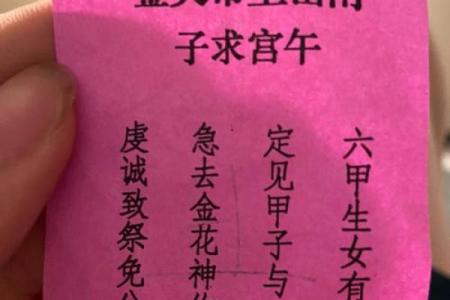 午宫求子
六甲生女有
定见甲子与
急去金花神
虔诚致祭免